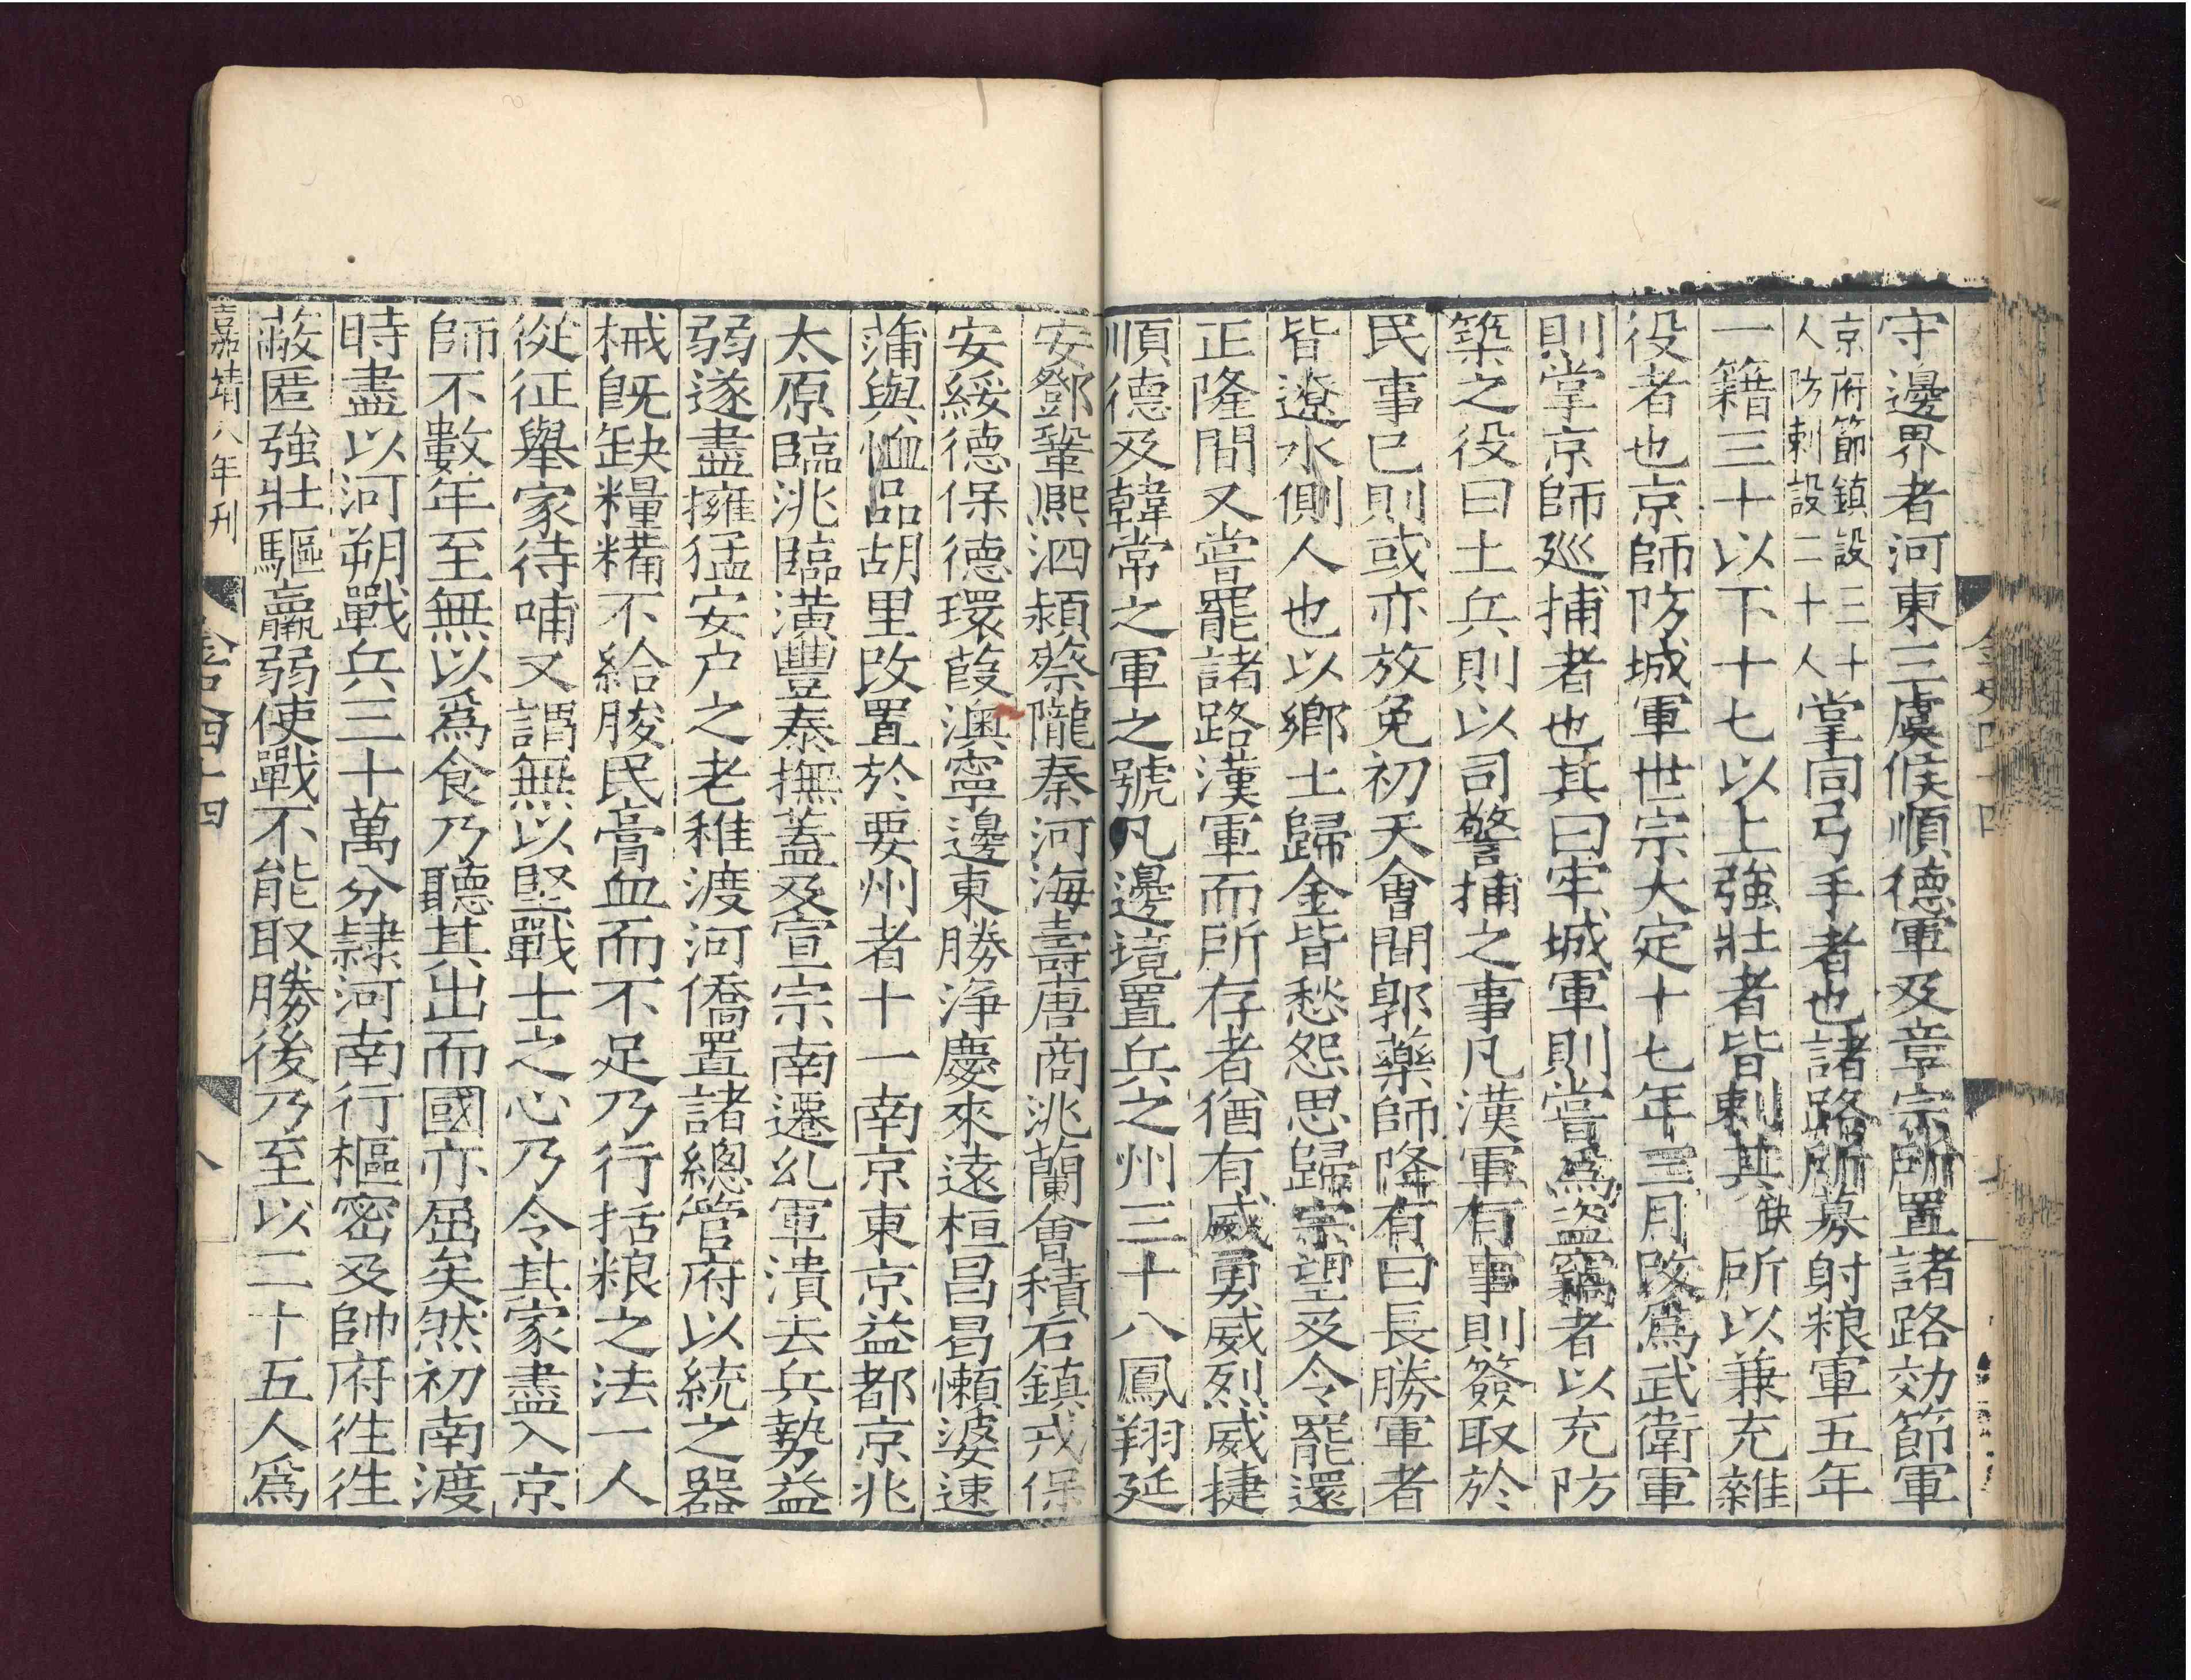 守邊界者河東三虞候順德軍及章宗所置諸路効節軍
京府節鎮設三十
人防刺設二十人
掌同弓手者也諸路所募射粮軍五年
一籍三十以下十七以上強壯者皆刺其缺所以兼充雜
役者也京師防城軍世宗大定十七年三月改爲武衛軍
則掌京師廵捕者也其曰牢城軍則嘗爲盜竊者以充防
築之役曰土兵則以司警捕之事凡漢軍有事則簽取於
民事已則或亦放免初天會間郭藥師降有曰長勝軍者
皆遼水側人也以鄉土歸金皆愁怨思歸宗望及令罷還
正隆間又嘗罷諸路漢軍而所存者猶有威勇威烈威捷
順德及韓常之軍之號凡邊境置兵之州三十八鳳翔延
安鄧鞏熙泗潁蔡隴秦河海壽唐商洮蘭會積石鎮戎保
安綏德保德環葭澳寧邊東勝淨慶來遠桓昌曷懶婆速
蒲與恤品胡里改置於要州者十一南京東京益都京兆
太原臨洮臨潢豐泰撫蓋及宣宗南遷乣軍潰去兵勢益
弱遂盡擁猛安户之老稚渡河僑置諸總管府以統之器
械旣缺糧糒不給朘民膏血而不足乃行括粮之法一人
從征舉家待哺又謂無以堅戰士之心乃令其家盡入京
師不數年至無以爲食乃聽其出而國亦屈矣然初南渡
時盡以河朔戰兵三十萬分隷河南行樞密及帥府徃徃
蔽匿強壯驅羸弱使戰不能取勝後乃至以二十五人爲
嘉靖八年刊 金史四十四 八